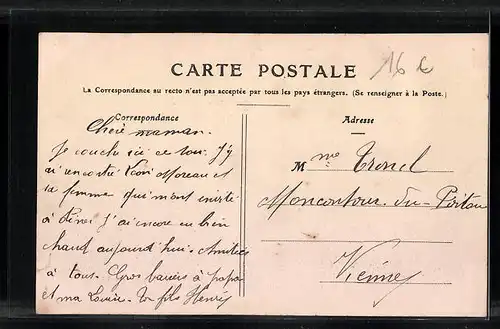 CARTE POSTALE
16 €
La Correspondance au recto n'est pas acceptée par tous les pays étrangers. (Se renseigner à la Poste.)
Correspondance
Chère maman.
Je couche ici ce soir. J'y
ai rencontré Moreau et
sa femme qui m'ont invité
à dîner J'ai encore eu bien
chaud aujourd'hui. Amitiés
à tous. Gros baisers à papa
et ma Louise. Ton fils Henri
Adresse
Mme
Moncontour-du-Poitou
Vienne